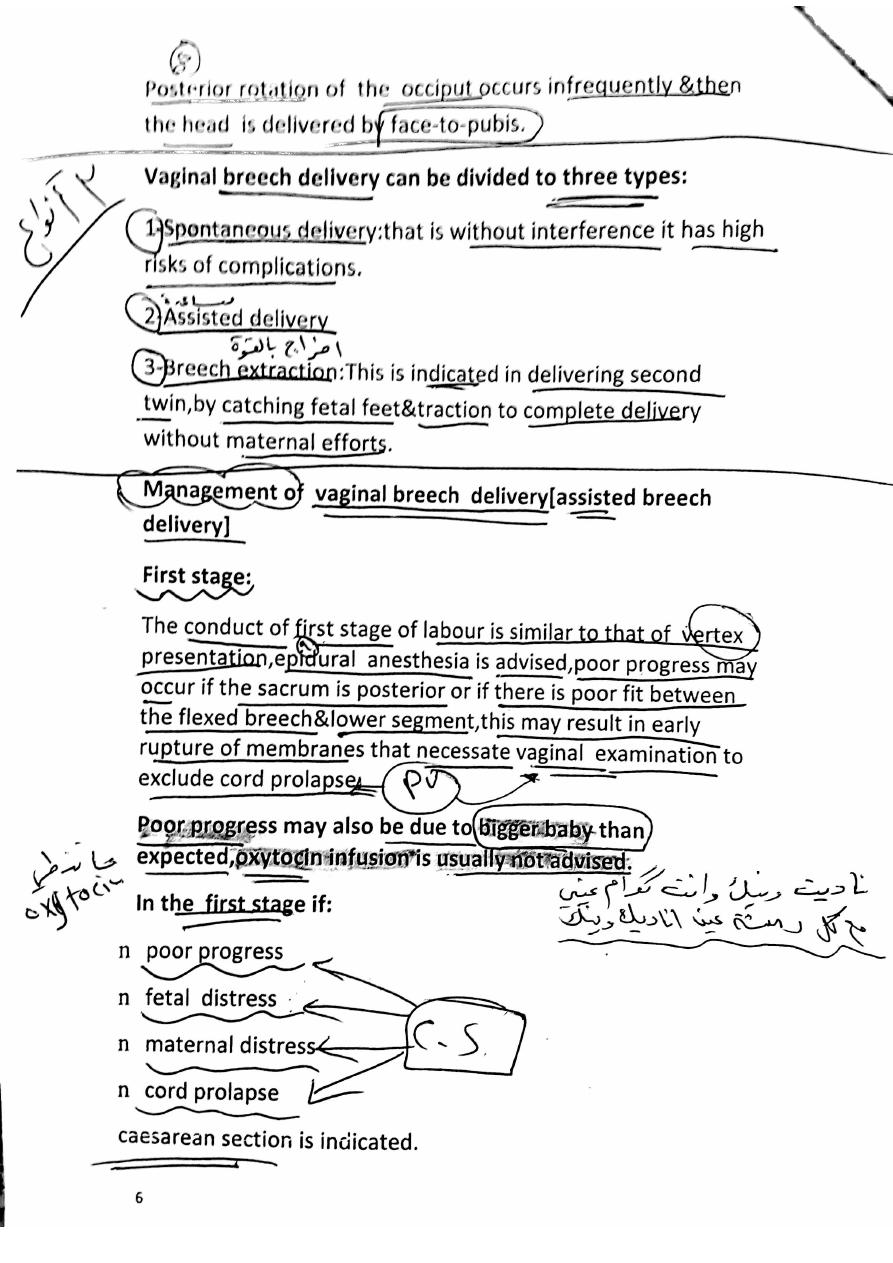 8
Posterior rotation of the occiput occurs infrequently &then
the head is delivered by face-to-pubis.
٣ أنواع
Vaginal breech delivery can be divided to three types:
1-Spontaneous delivery:that is without interference it has high
risks of complications.
2-Assisted delivery
اخراج بالقوة
3-Breech extraction:This is indicated in delivering second
twin,by catching fetal feet&traction to complete delivery
without maternal efforts.
Management of vaginal breech delivery[assisted breech
delivery]
First stage:
The conduct of first stage of labour is similar to that of vertex
presentation,epidural anesthesia is advised,poor progress may
occur if the sacrum is posterior or if there is poor fit between
the flexed breech&lower segment,this may result in early
rupture of membranes that necessate vaginal examination to
exclude cord prolapse.
PV
Poor progress may also be due to bigger baby than
expected,oxytocin infusion is usually not advised.
oxytocin
ناديت وينك وانت گدام عيني
مع كل رمشة عين اناديك وينك
In the first stage if:
n poor progress
n fetal distress
n maternal distress
n cord prolapse
C.S.
caesarean section is indicated.
6